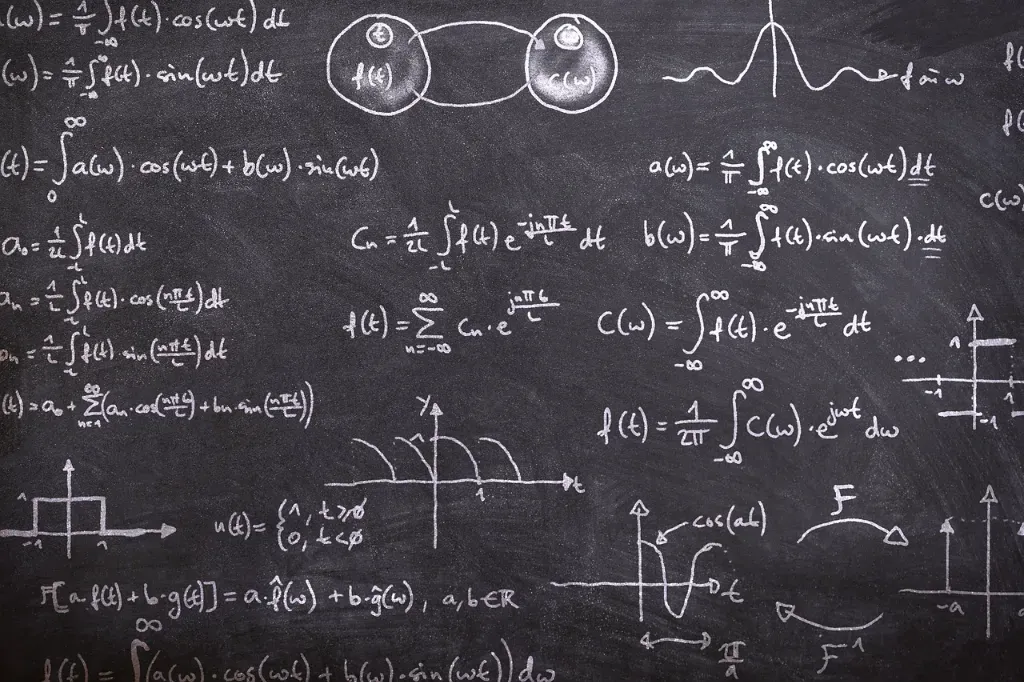 (ω) = 1/π ∫_{-∞} f(t)·cos(ωt) dt
(ω) = 1/π ∫_{-∞}^{∞} f(t)·sin(ωt) dt
t
f(t)
c(ω)
f
ω
f(
f(
(t) = ∫_0^∞ a(ω)·cos(ωt) + b(ω)·sin(ωt)
a(ω) = 1/π ∫_{-∞}^{∞} f(t)·cos(ωt) dt
c(ω)
a₀ = 1/2L ∫_{-L}^{L} f(t) dt
Cn = 1/2L ∫_{-L}^{L} f(t) e^{-jnπt/L} dt
b(ω) = 1/π ∫_{-∞}^{∞} f(t)·sin(ωt)·dt
an = 1/L ∫_{-L}^{L} f(t)·cos(nπt/L) dt
f(t) = Σ_{n=-∞}^{∞} Cn·e^{jnπt/L}
C(ω) = ∫_{-∞}^{∞} f(t)·e^{-jnπt/L} dt
bn = 1/L ∫_{-L}^{L} f(t)·sin(nπt/L) dt
...
1
-1
1
-1
(t) = a₀ + Σ_{n=1}^{∞} (an·cos(nπt/L) + bn·sin(nπt/L))
f(t) = 1/2π ∫_{-∞}^{∞} C(ω)·e^{jωt} dω
y
1
1
t
1
-1
1
u(t) = {1, t≥0
{0, t<0
cos(at)
t
π/a
F
F⁻¹
-a
F[a·f(t) + b·g(t)] = a·f̂(ω) + b·ĝ(ω), a,b∈ℝ
f(t) = ∫^∞ (a(ω)·cos(ωt) + b(ω)·sin(ωt)) dω